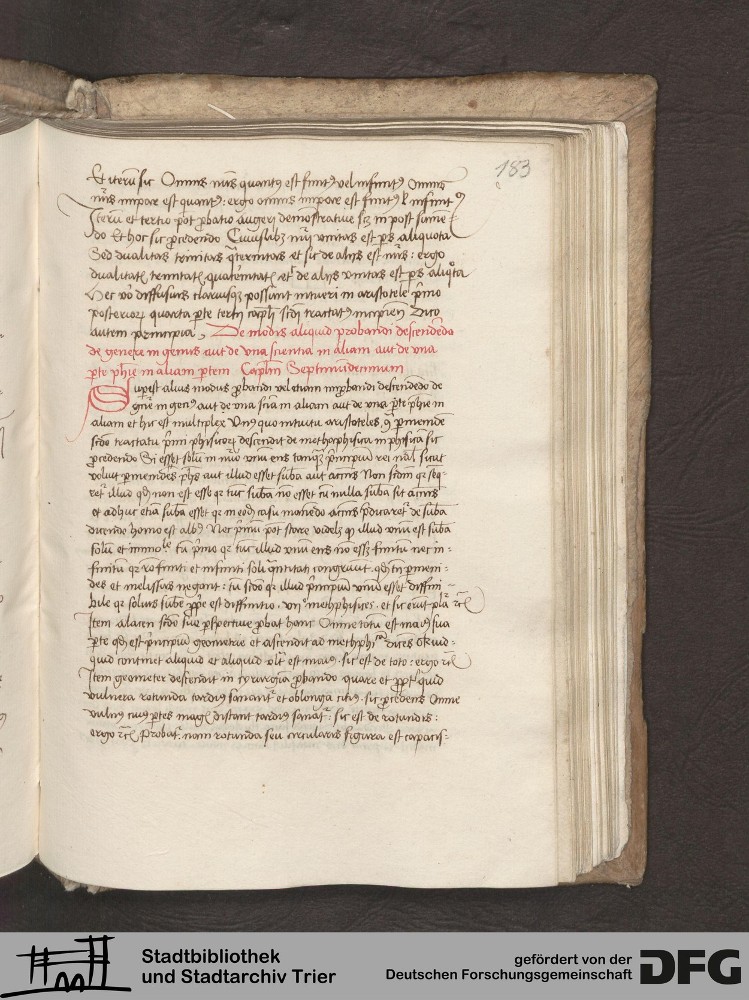 183
Et iterū sic Omnis nūs quantꝰ est finitꝰ vel infinitꝰ Omnis
nūs impar est quantꝰ: ergo omnis impar est finitꝰ l̄ infinitꝰ
Iterū et tertio pōt ꝓbatio augeri demōstratiue scꝫ in post sume
do Et hoc sic ꝓcedendo Cuiuslibꝫ nūi vnitas est ꝑs aliquota
Sed dualitas trinitas q̄ternitas et sic de alijs est nūs: ergo
dualitatꝭ trinitatꝭ quat̄nitatꝭ et de alijs vnitas est ꝑs aliqͦta
Hec vō diffusius clariusqꝫ possunt intueri in aristotele pͥmo
posterioꝝ quarta ꝑte tertij capłi scdi tractatꝰ incipien̄ Dico
autem principia, De modis aliquid probandi descendēdo
de genere in genus aut de vna scientia in aliam aut de vna
ꝑte phīe in aliam ꝑtem Caplm̄ Septimūdecimum
Supest alius modus ꝓbandi vel etiam improbandi descendēdo de
gn̄e in genꝰ aut de vna scīa in aliam aut de vna ꝑte phīe in
aliam et hic est multiplex Vnꝰ quo intuitu aristoteles ꝯ ꝑmenidē
scd̄o tractatu pͥmi phisicoꝝ descendit de methaphisica in phisicā sic
ꝓcedendo Si esset solū in nūo vnū ens tanqꝫ pͥncipiū rei nāl̄ sicut
voluit ꝑmenides ph̄s aut illud esset sub̄a aut accn̄s Non scdm̄ qꝛ seq̄=
ret̄ illud qd̄ non est esse qꝛ tūc sub̄a nō esset cū nulla sub̄a sit accn̄s
et adhuc etiā sub̄a esset qꝛ in eodē casu manēdo accn̄s p̄dicaret̄ de sub̄a
dicendo homo est albꝰ Nec pͥmū pōt stare videlꝫ ꝙ illud vnū est sub̄a
solū et immoͥle tū pͥmo qꝛ tūc illud vnū ens nō essꝫ finitū nec in=
finitū qꝛ rō finiti et infiniti soli q̄ntitati congruūt qd̄ tn̄ ꝑmeni=
des et melissus negant: tū scd̄o qꝛ illud pͥncipiū vnū esset diffini=
bile qꝛ solius sub̄e ꝓpͥe est diffinitio. vijͦ methaphisices. et sic erūt pl̄a ꝛc̄
Item alacen scd̄o sue ꝑspectiue ꝓbat hanc Omne totū est maiꝰ sua
ꝑte qd̄ est pͥncipiū geometrie et ascendit ad methaphiᵃᵐ dicēs Qͥcūd=
quid continet aliquid et aliquid vlt̄ est maiꝰ. sic est de toto: ergo ꝛc̄
Item geometer descendit in cyrurgiā ꝓbando quare et ꝓpt̄ quid
vulnera rotunda tardiꝰ sanant̄ et oblonga citiꝰ. sic ꝓcedens Omne
vulnꝰ cuiꝰ ꝑtes magꝭ distant tardiꝰ sanat̄: sic est de rotundis:
ergo ꝛc̄ Probat̄: nam rotunda seu circularis figura est capacis=
Stadtbibliothek
und Stadtarchiv Trier
gefördert von der
Deutschen Forschungsgemeinschaft
DFG